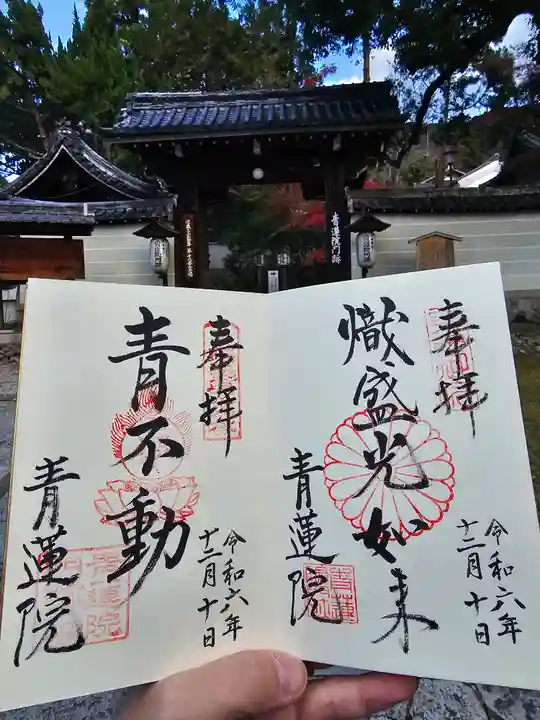 奉拝
熾盛光如来
青蓮院
令和六年
十二月十日
奉拝
青不動
青蓮院
令和六年
十二月十日
青蓮院門跡